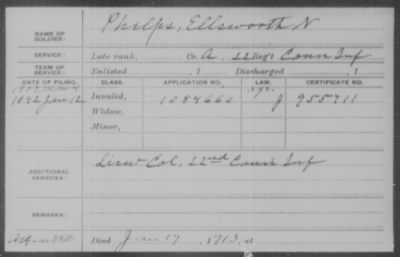 NAME OF SOLDIER: Phelps, Ellsworth N
SERVICE: Late rank, Co. A, 22 Reg't Conn Inf
TERM OF SERVICE: Enlisted , 1 Discharged , 1
DATE OF FILING. CLASS. APPLICATION NO. LAW. CERTIFICATE NO.
1892 Jan 12 Invalid, 1088660 J 955711
Widow,
Minor,
ADDITIONAL SERVICES: Lieut Col. 22nd Conn Inf
REMARKS:
Died Jan 17, 1913, at